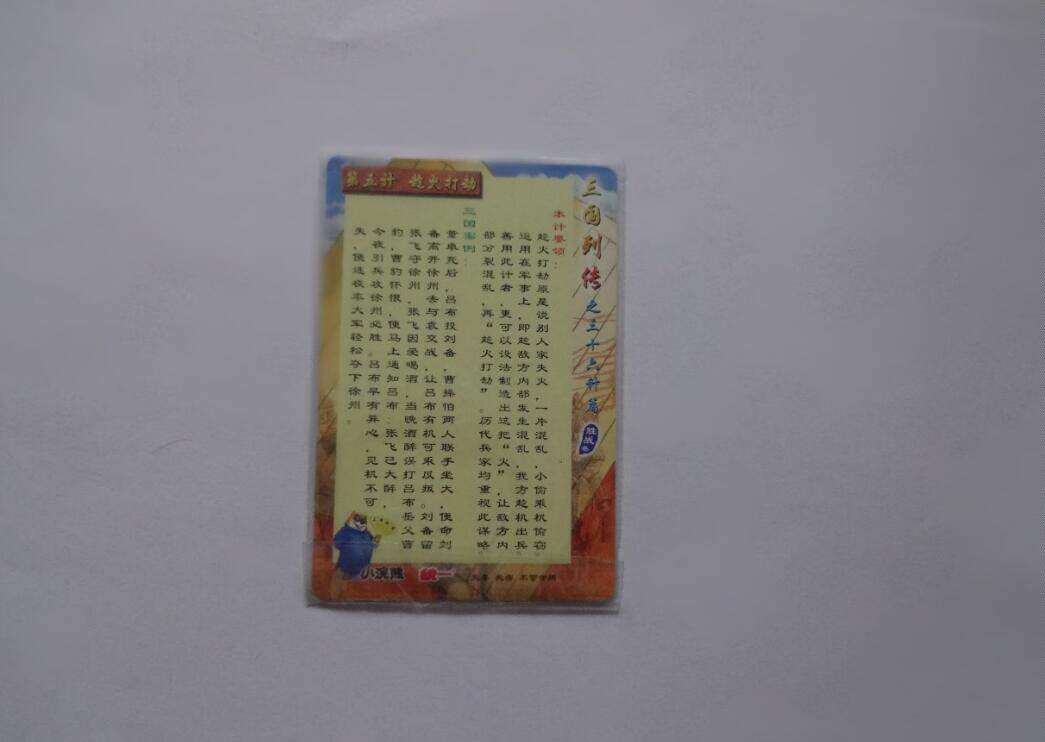 第五计 趁火打劫
三国列传之三十六计篇
胜战
本计要领：
趁火打劫原是说别人家失火，一片混乱，小偷乘机偷窃
运用在军事上，即趁敌方内部发生混乱，我方趁机出兵
善用此计者，更可以设法制造出这把“火”，让敌方内
部分裂混乱，再“趁火打劫”。历代兵家均重视此谋略
三国案例：
董卓死后，吕布投刘备，曹操怕两人联手坐大，便命刘
备离开徐州，去与袁交战，让吕布有机可乘以叛。刘备留
张飞守徐州，张飞因爱喝酒，当晚酒醉误打吕布岳父曹
豹，曹豹怀恨，便马上通知吕布：张飞已大醉，
今夜引兵攻徐州，必胜。吕布早有异心，见机不可
失，便连夜率大军轻松夺下徐州。
小浣熊 统一